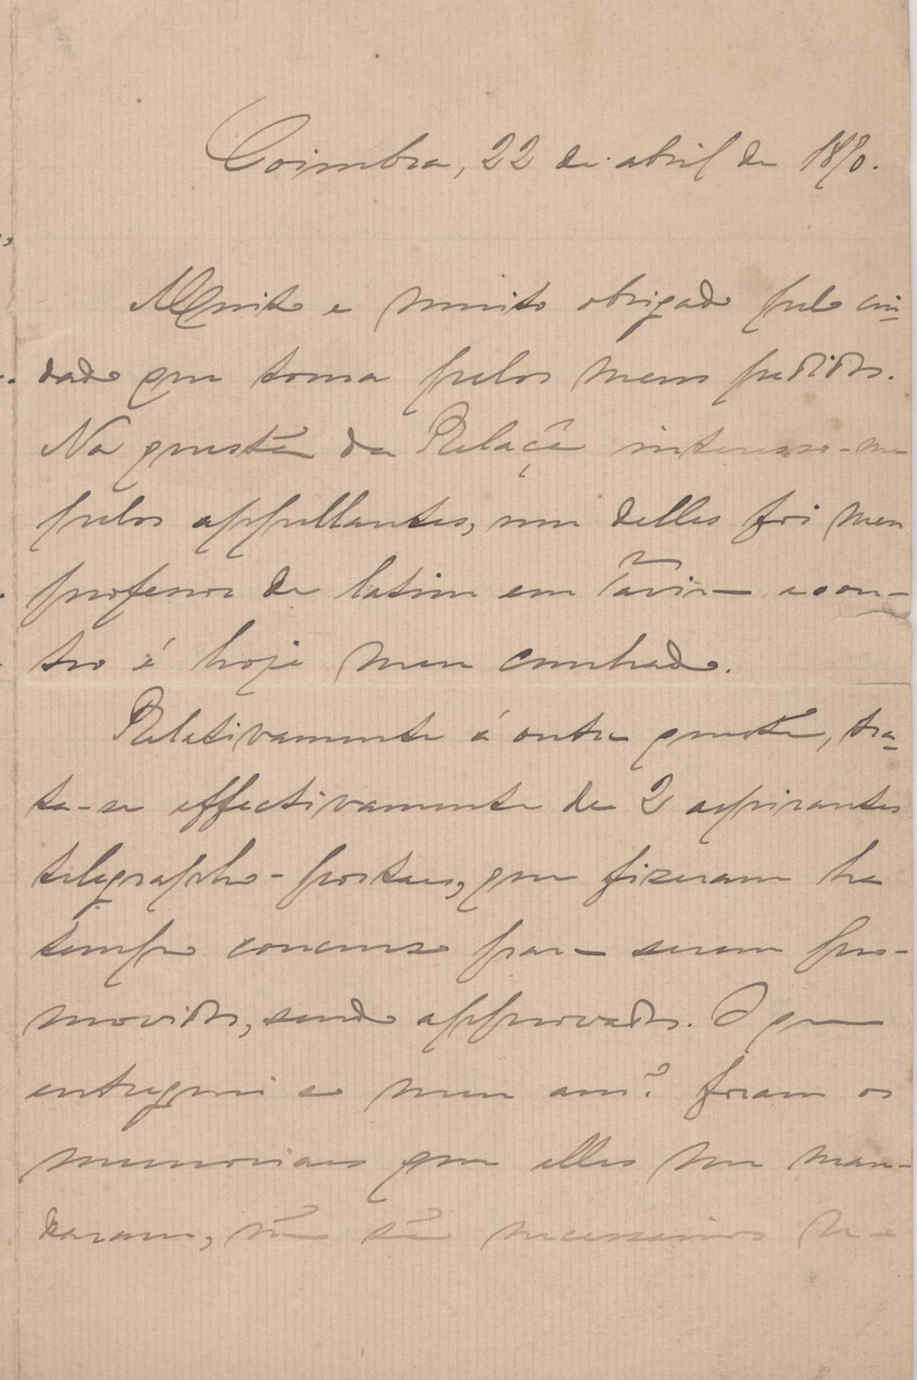 Coimbra, 22 de abril de 1890.
Muito e muito obrigado pelo cui-
dado que toma pelos meus pedidos.
Na questão da Relação interesso-me
pelos appellantes, um delles foi meu
professor de latim em Tavira e o ou-
tro é hoje meu cunhado.
Relativamente á outra questão, tra-
ta-se effectivamente de 2 aspirantes
telegrapho-postaes, que fizeram ha
tempo concurso para serem pro-
movidos, sendo approvados. O que
entreguei ao meu am.º foram os
memoriaes que elles me man-
daram, não são necessarios